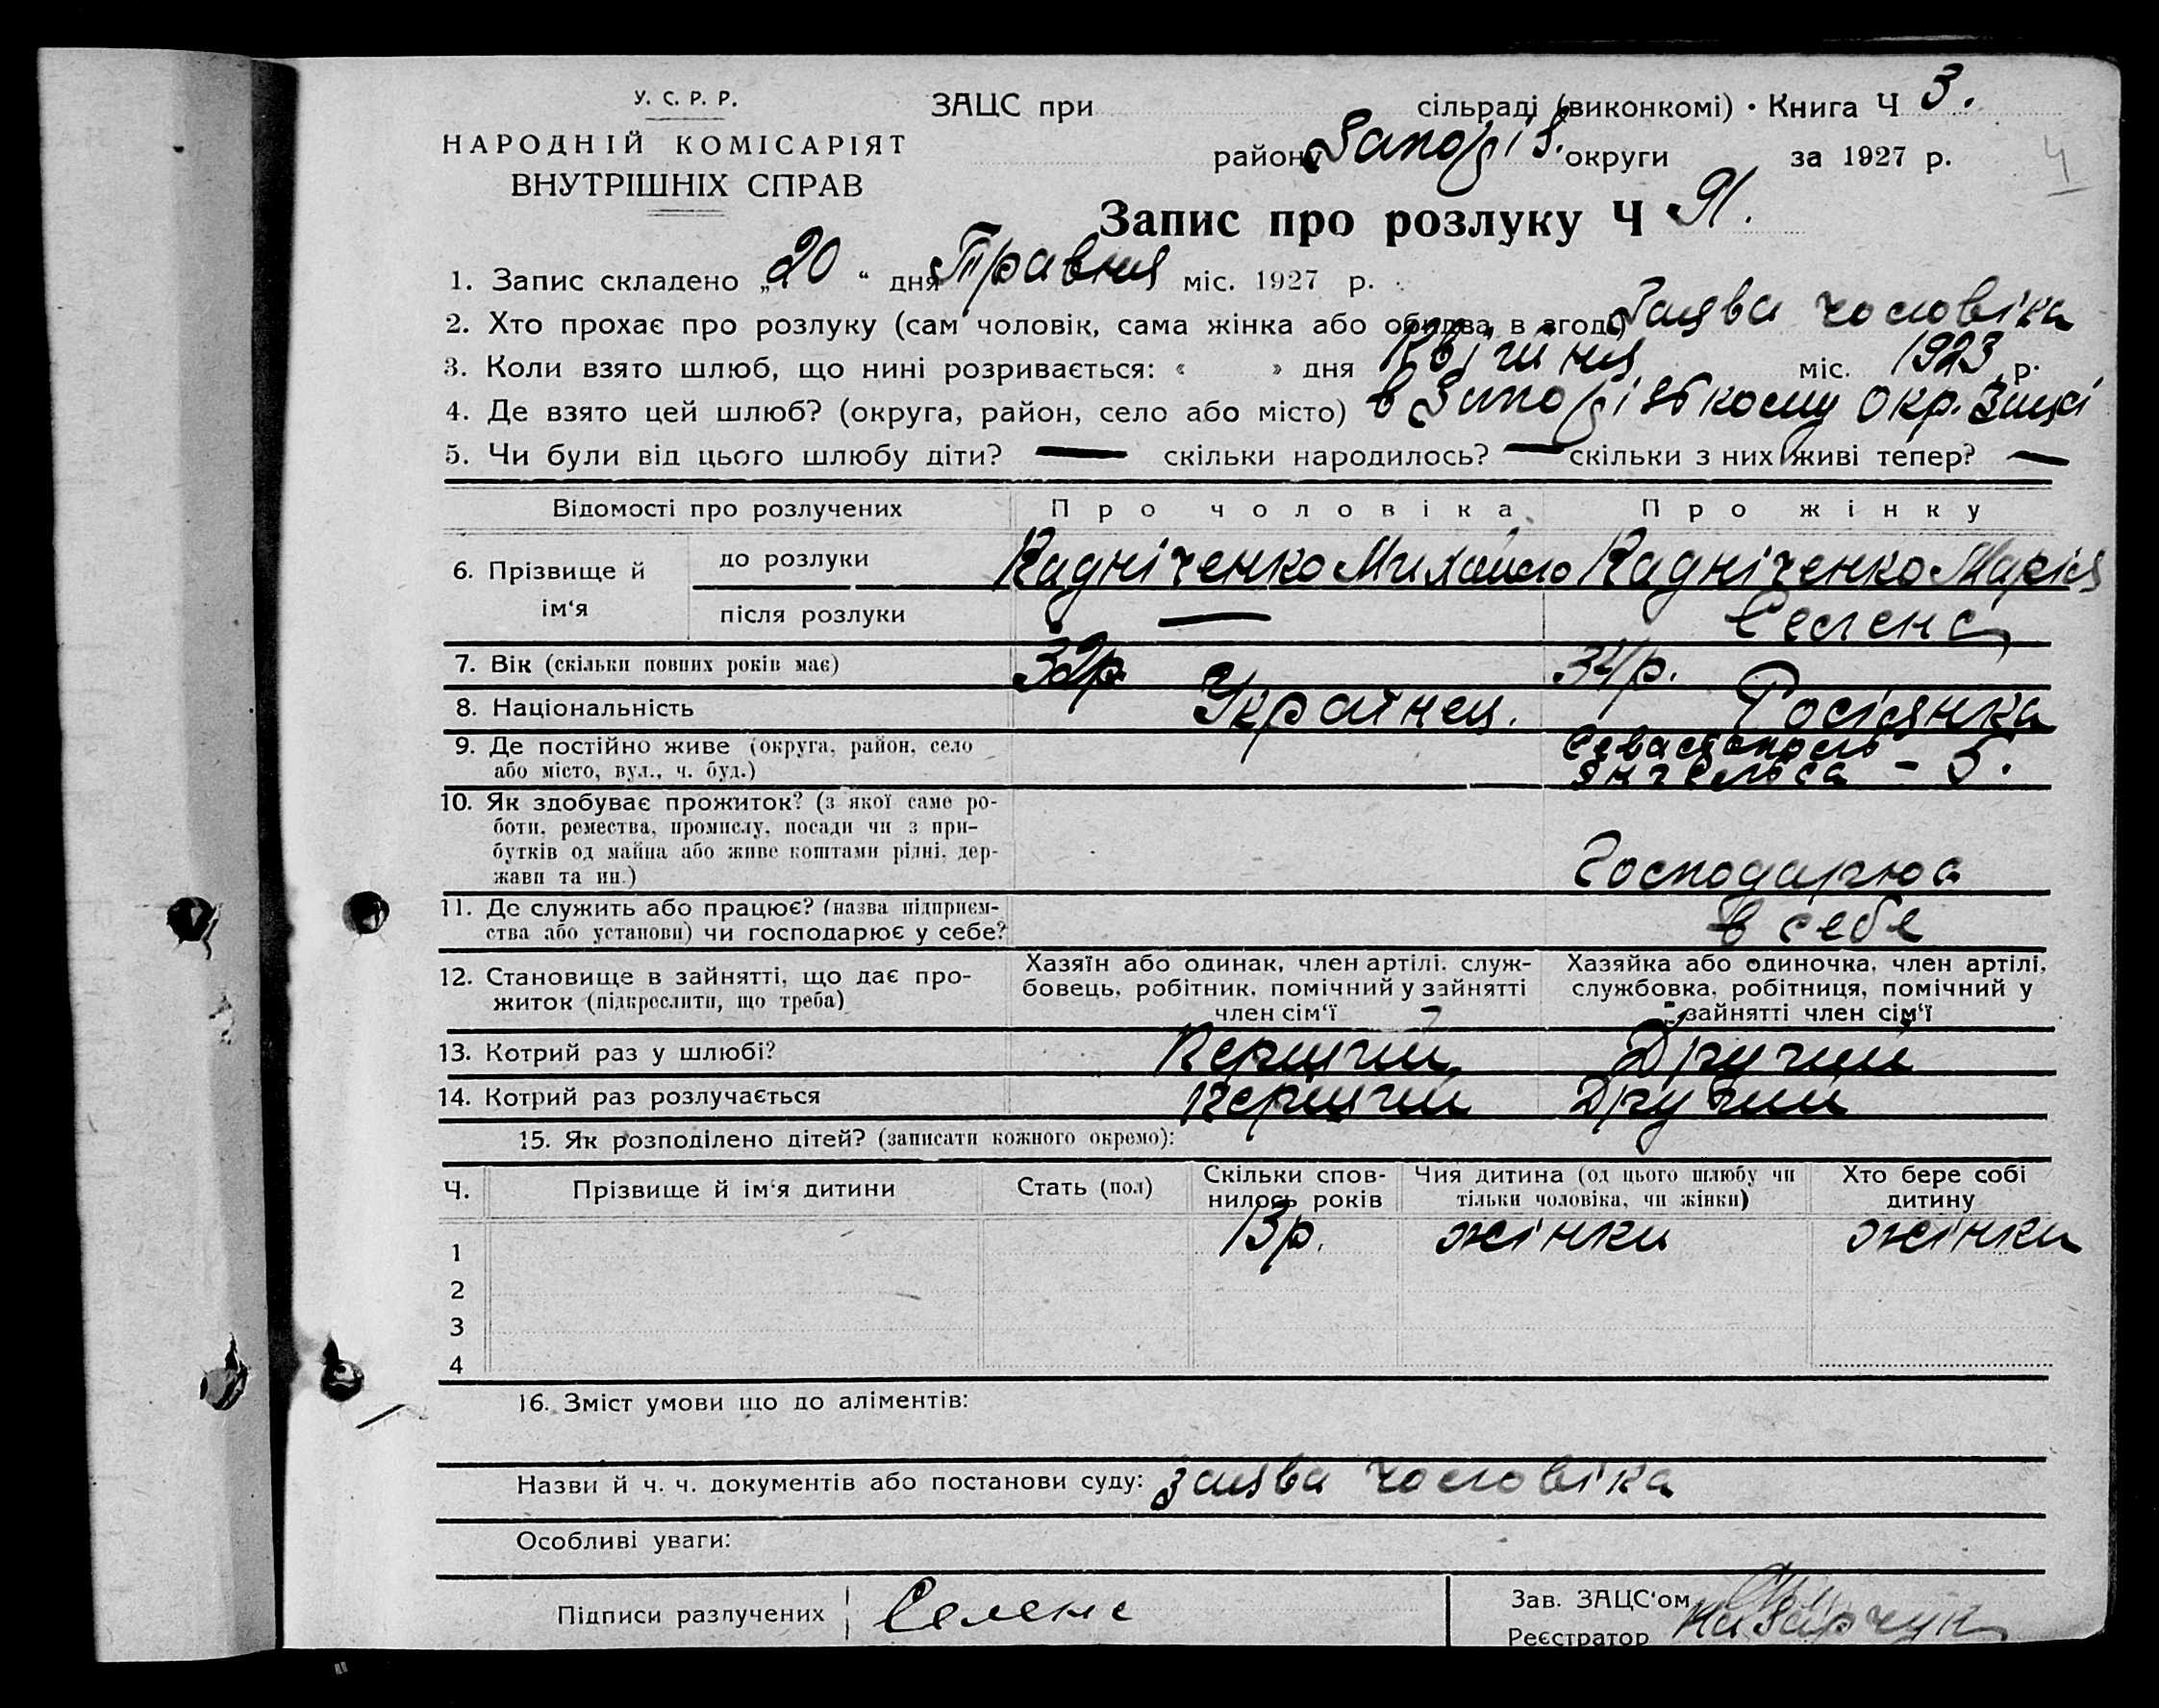 У. С. Р. Р.
НАРОДНІЙ КОМІСАРІЯТ
ВНУТРІШНІХ СПРАВ
ЗАЦС при сільраді (виконкомі) • Книга Ч 3.
району Запоріз. округи за 1927 р.
4
Запис про розлуку Ч 91.
1. Запис складено „20“ дня Травня міс. 1927 р.
2. Хто прохає про розлуку (сам чоловік, сама жінка або обидва в згоді) Заява чоловіка
3. Коли взято шлюб, що нині розривається: « » дня Квітня міс. 1923 р.
4. Де взято цей шлюб? (округа, район, село або місто) в Запорізькому Окр. Зацсі
5. Чи були від цього шлюбу діти? — скільки народилось? — скільки з них живі тепер? —
Відомості про розлучених Про чоловіка Про жінку
6. Прізвище й ім‘я до розлуки Кадніченко Михайло Кадніченко Марія
після розлуки — Селене
7. Вік (скільки повних років має) 32р. 34р.
8. Національність Українец. Росіянка
9. Де постійно живе (округа, район, село Севастополь
або місто, вул., ч. буд.) Янгельса – 5.
10. Як здобуває прожиток? (з якої саме ро-
боти, ремества, промислу, посади чи з при-
бутків од майна або живе коштами рідні, дер-
жави та ин.) Господарює
11. Де служить або працює? (назва підприєм-
ства або установи) чи господарює у себе? в себе
12. Становище в зайнятті, що дає про-
житок (підкреслити, що треба)
Хазяїн або одинак, член артілі, служ-
бовець, робітник, помічний у зайнятті
член сім‘ї
Хазяйка або одиночка, член артілі,
службовка, робітниця, помічний у
зайнятті член сім‘ї
13. Котрий раз у шлюбі? Перший Другий
14. Котрий раз розлучається перший Другий
15. Як розподілено дітей? (записати кожного окремо):
Ч. Прізвище й ім‘я дитини Стать (пол) Скільки спов-
нилось років Чия дитина (од цього шлюбу чи
тільки чоловіка, чи жінки) Хто бере собі
дитину
1 13р. жінки жінки
2
3
4
16. Зміст умови що до аліментів:
Назви й ч. ч. документів або постанови суду: заява чоловіка
Особливі уваги:
Підписи разлучених Селене
Зав. ЗАЦС‘ом
Реєстратор